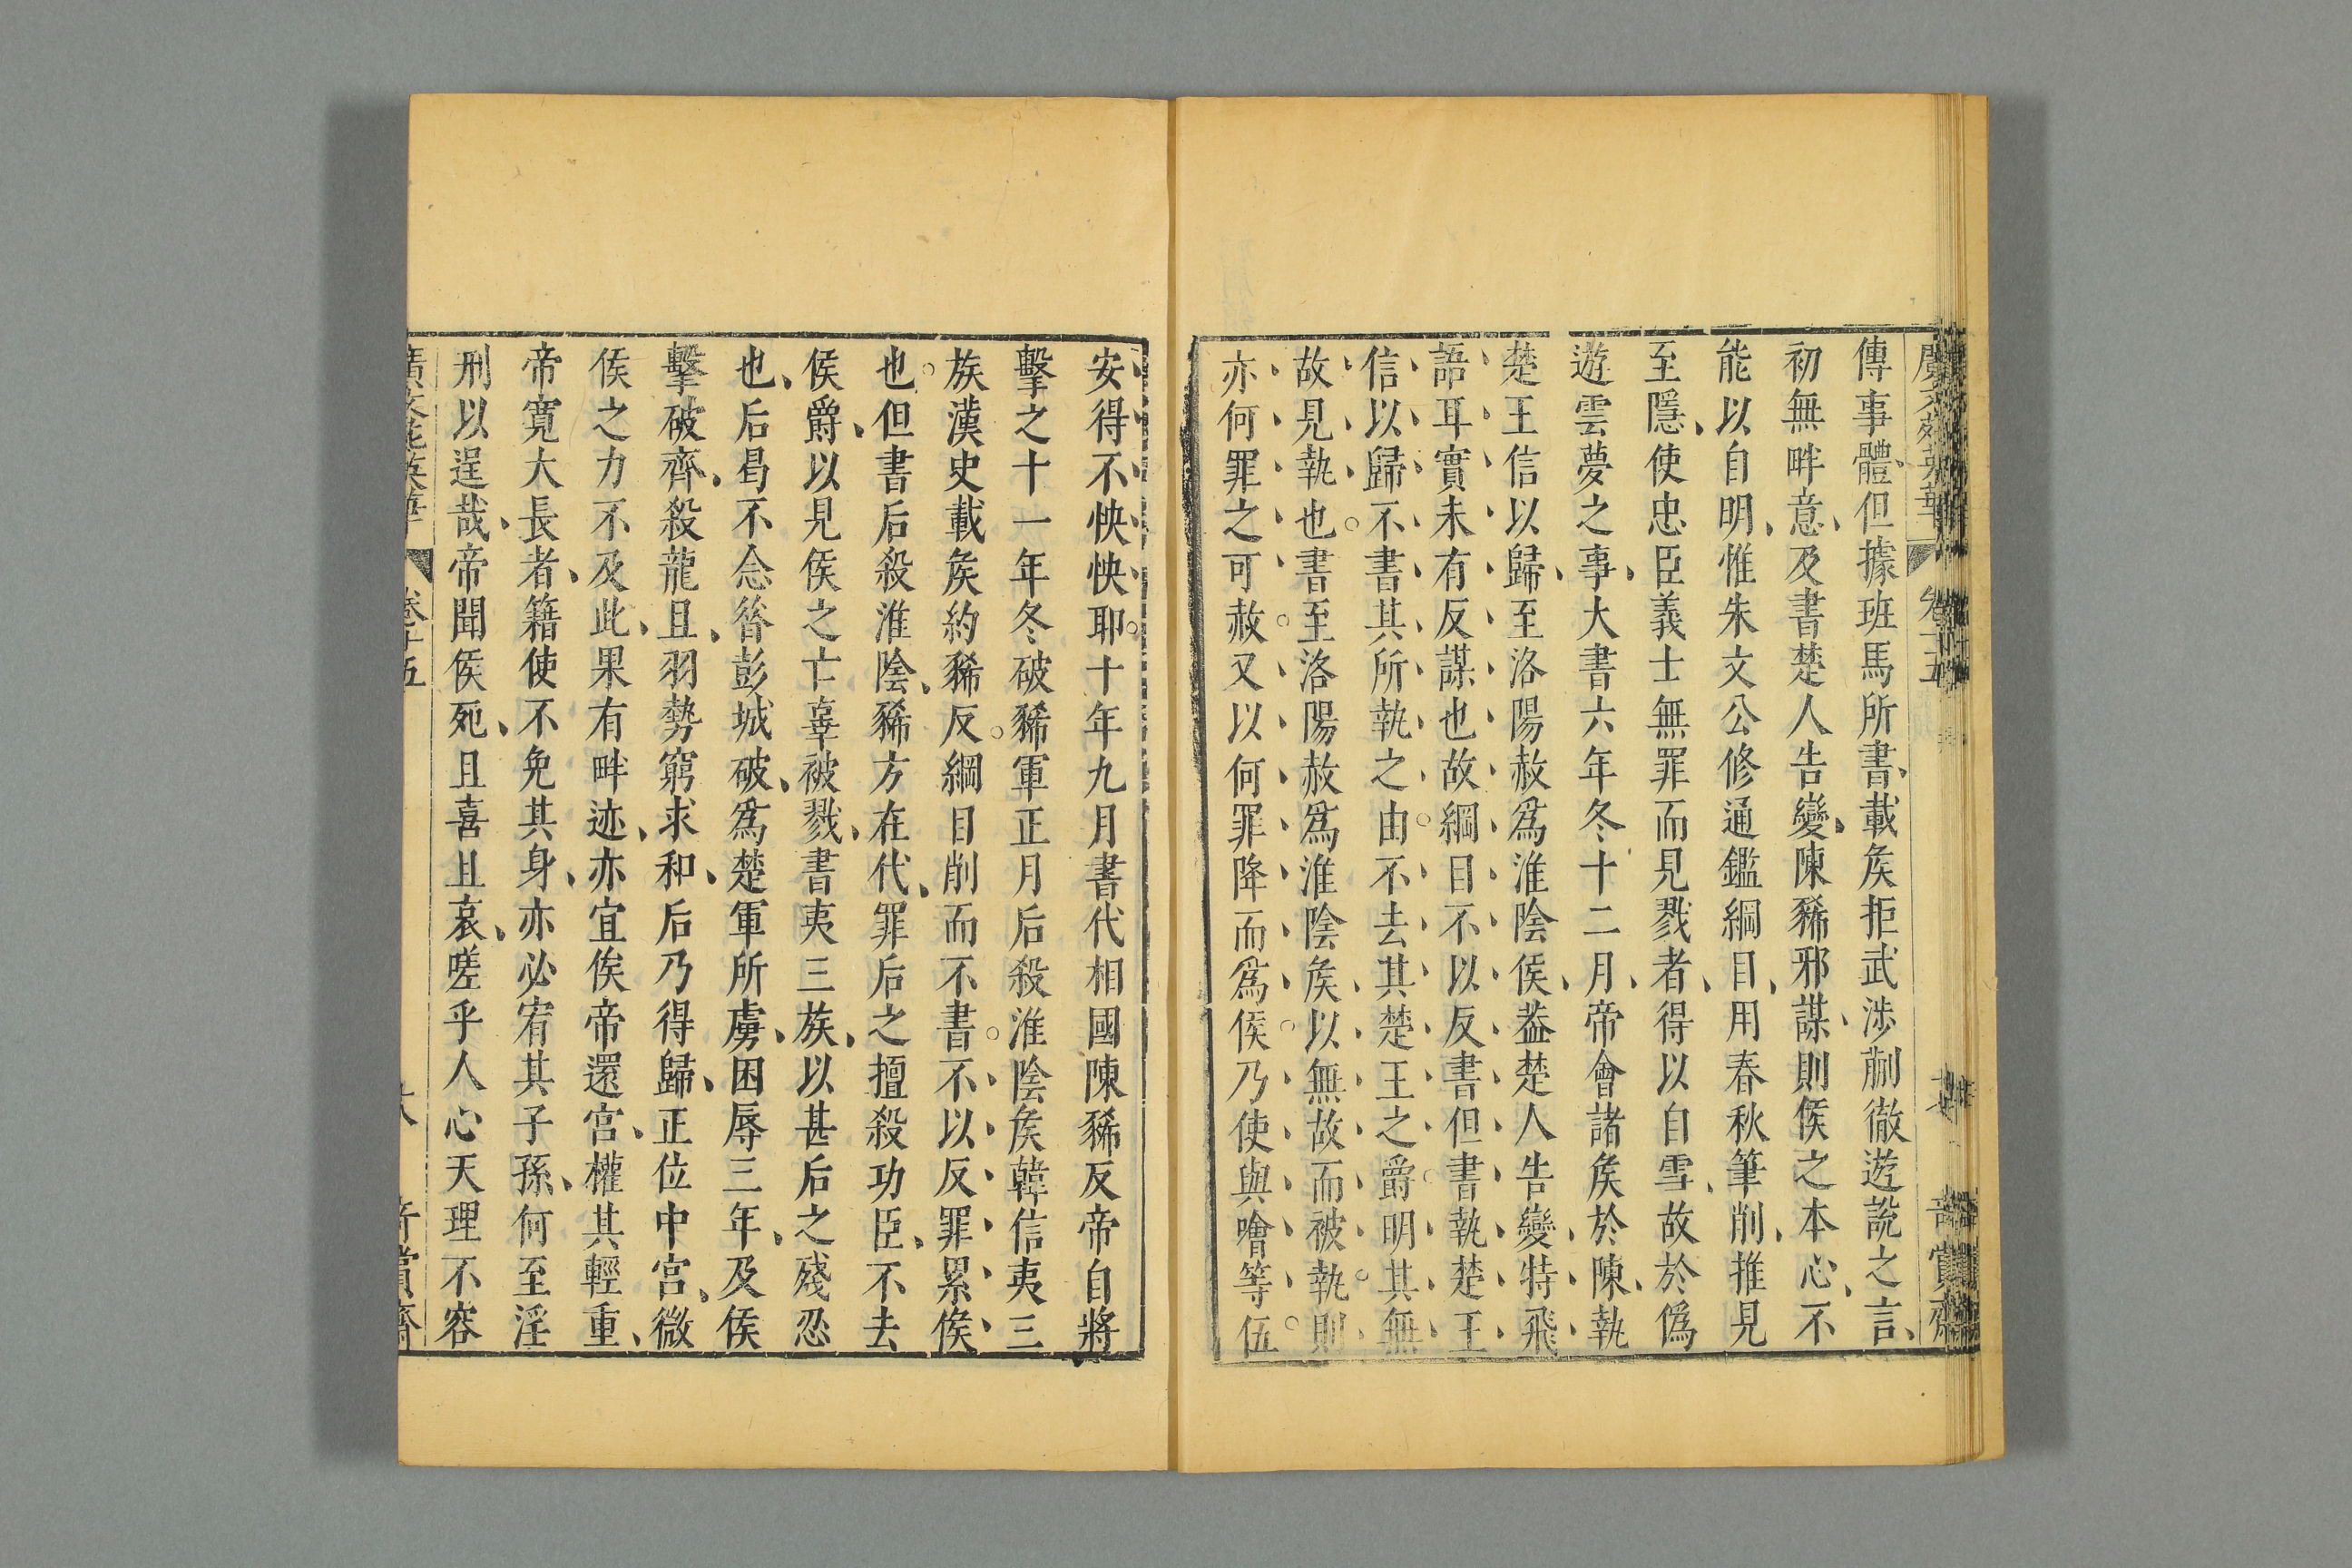 廣文苑英華 卷十五 賞齋
傳事體但據班馬所書載矦拒武涉蒯徹遊說之言
初無畔意及書楚人告變陳豨邪謀則侯之本心不
能以自明惟朱文公修通鑑綱目用春秋筆削推見
至隱使忠臣義士無罪而見戮者得以自雪故於僞
遊雲夢之事大書六年冬十二月帝會諸矦於陳執
楚王信以歸至洛陽赦爲淮陰侯葢楚人告變特飛
語耳實未有反謀也故綱目不以反書但書執楚王
信以歸不書其所執之由不去其楚王之爵明其無
故見執也書至洛陽赦爲淮陰矦以無故而被執則
亦何罪之可赦又以何罪降而爲侯乃使與噲等伍
安得不怏怏耶十年九月書代相國陳豨反帝自將
擊之十一年冬破豨軍正月后殺淮陰矦韓信夷三
族漢史載矦約豨反綱目削而不書不以反罪累侯
也但書后殺淮陰豨方在代罪后之擅殺功臣不去
侯爵以見侯之亡辜被戮書夷三族以甚后之殘忍
也后曷不念昝彭城破爲楚軍所虜困辱三年及侯
擊破齊殺龍且羽勢窮求和后乃得歸正位中宮微
侯之力不及此果有畔迹亦宜俟帝還宮權其輕重
帝寬大長者籍使不免其身亦必宥其子孫何至淫
刑以逞哉帝聞侯死且喜且哀嗟乎人心天理不容
廣文苑英華 卷十五 六 賞齋